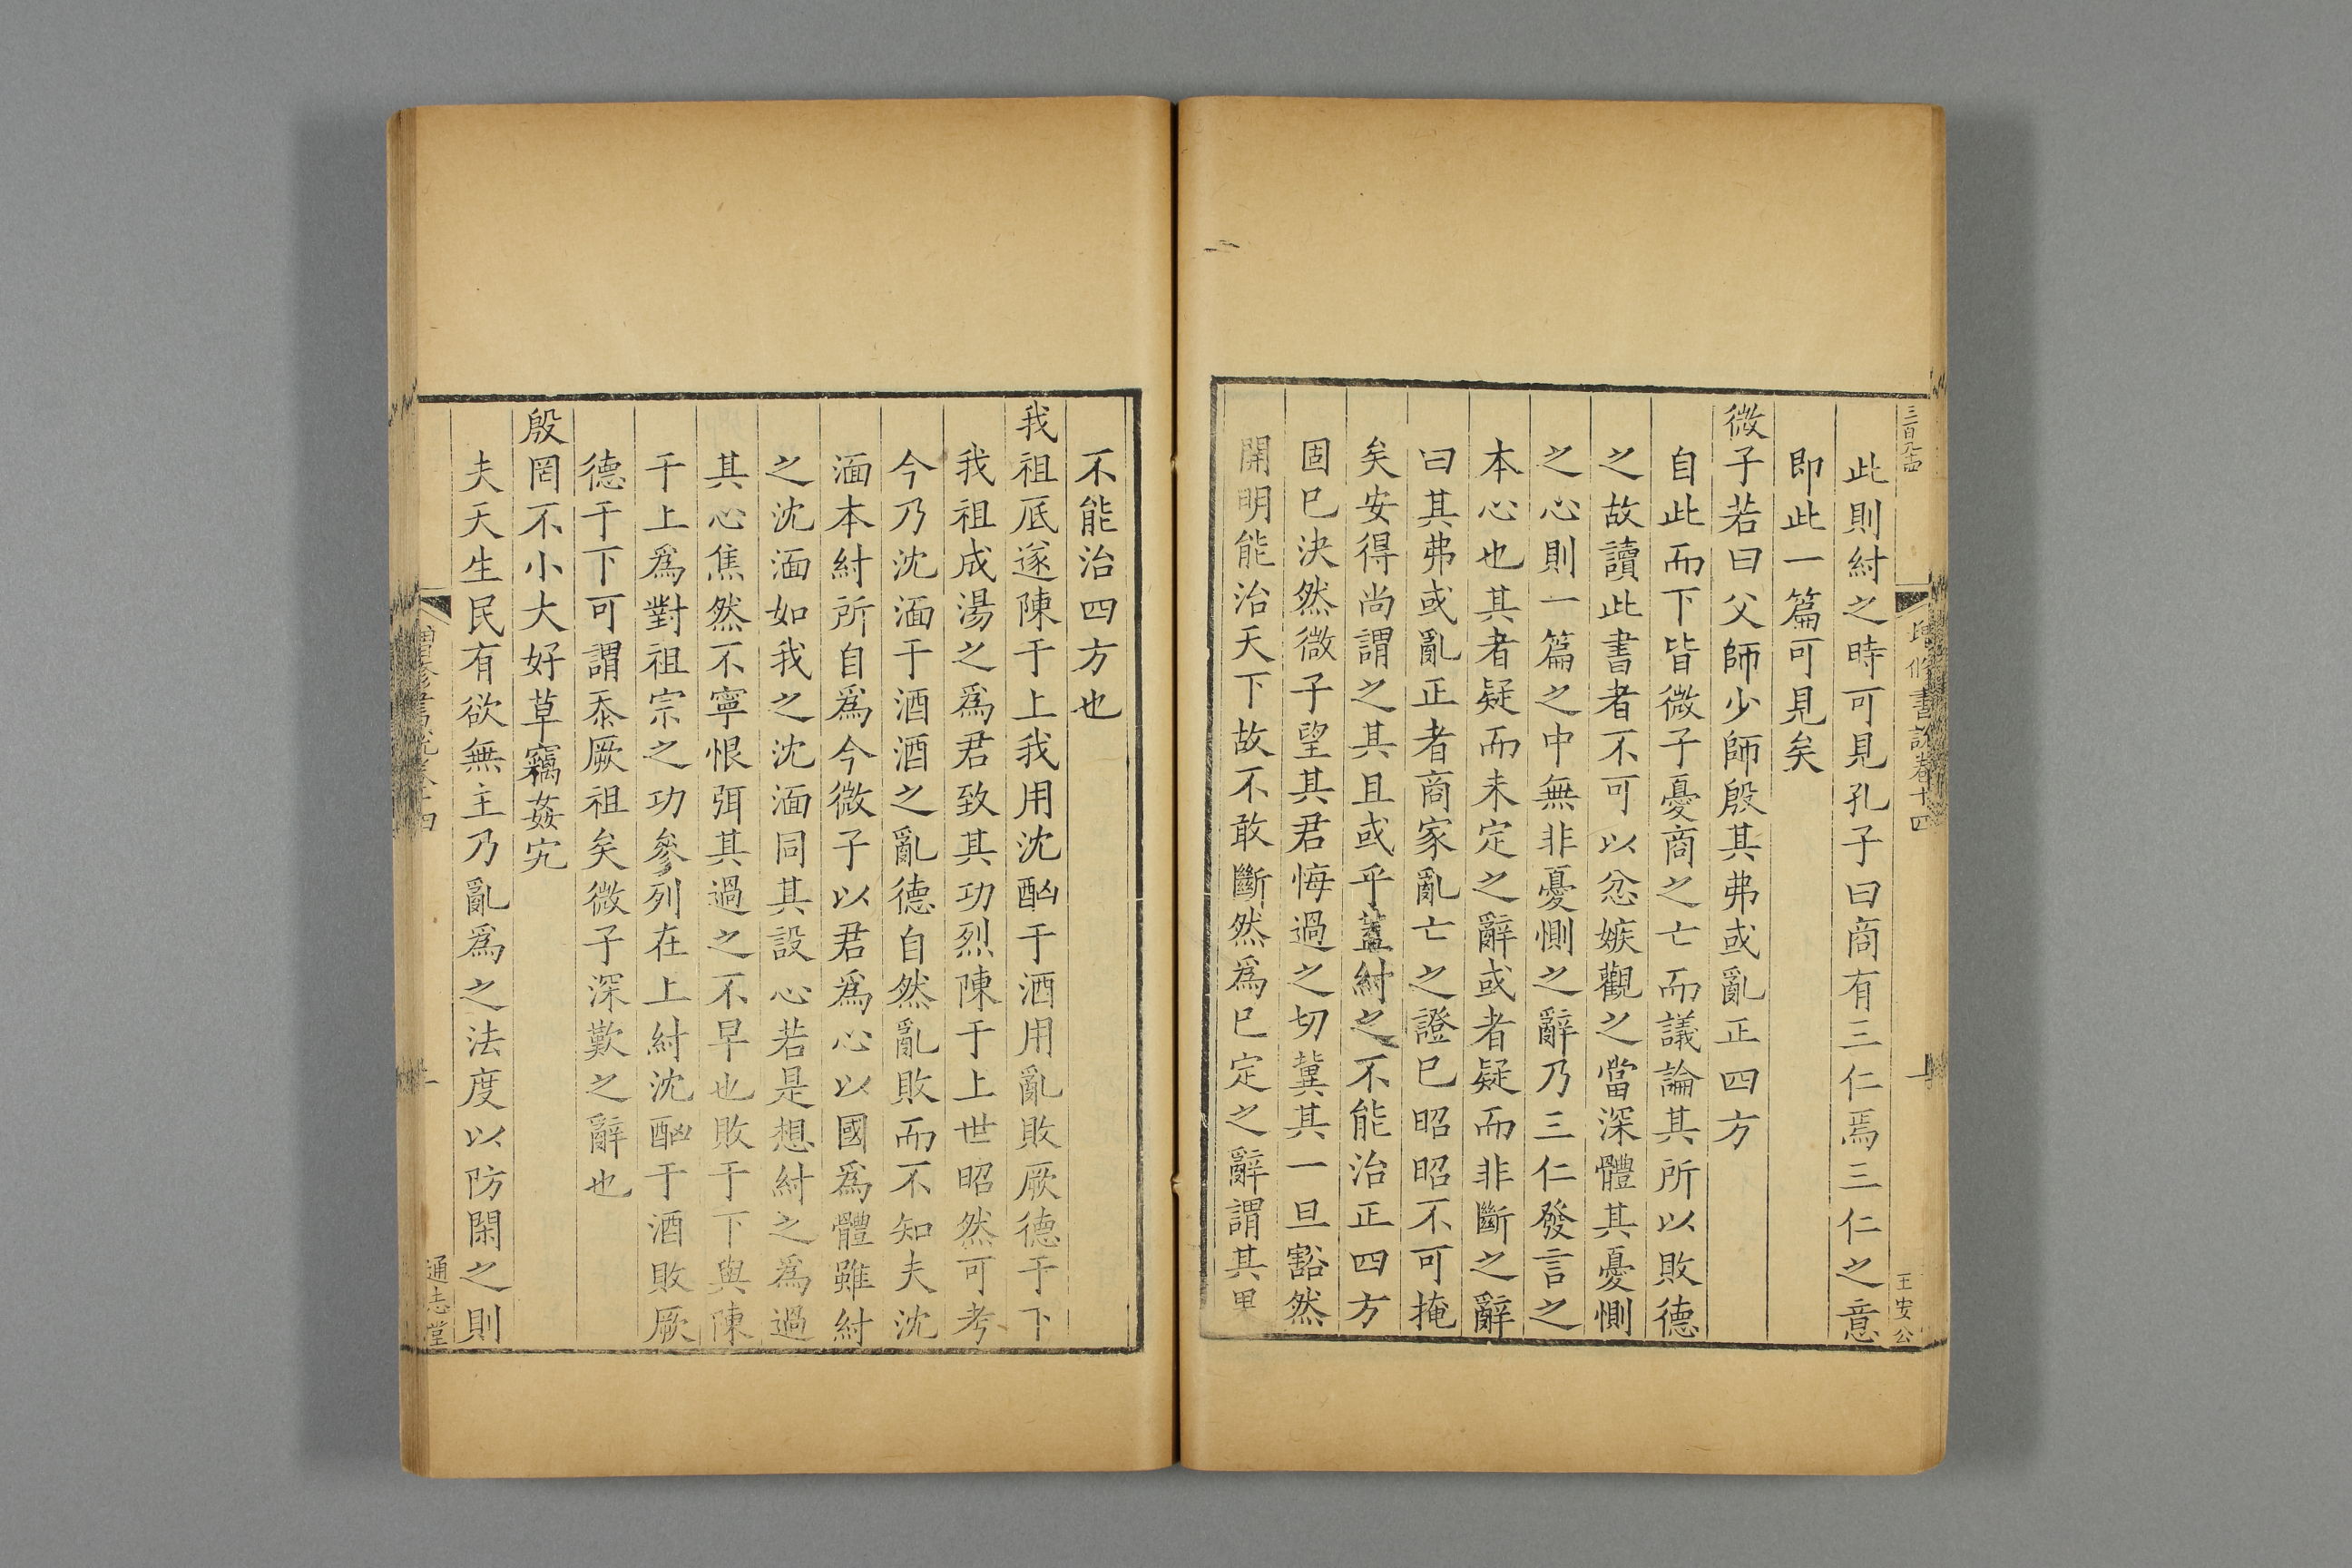 三百九十四
氏修書說卷十四
十
王安公
此則紂之時可見孔子曰商有三仁焉三仁之意
即此一篇可見矣
微子若曰父師少師殷其弗或亂正四方
自此而下皆微子憂商之亡而議論其所以敗德
之故讀此書者不可以忿嫉觀之當深體其憂惻
之心則一篇之中無非憂惻之辭乃三仁發言之
本心也其者疑而未定之辭或者疑而非斷之辭
曰其弗或亂正者商家亂亡之證已昭昭不可掩
矣安得尚謂之其且或乎蓋紂之不能治正四方
固已決然微子望其君悔過之切冀其一旦豁然
開明能治天下故不敢斷然爲已定之辭謂其果
不能治四方也
我祖厎遂陳于上我用沈酗于酒用亂敗厥德于下
我祖成湯之爲君致其功烈陳于上世昭然可考
今乃沈湎于酒酒之亂德自然亂敗而不知夫沈
湎本紂所自爲今微子以君爲心以國爲體雖紂
之沈湎如我之沈湎同其設心若是想紂之爲過
其心焦然不寧恨弭其過之不早也敗于下與陳
于上爲對祖宗之功參列在上紂沈酗于酒敗厥
德于下可謂忝厥祖矣微子深歎之辭也
殷罔不小大好草竊姦宄
夫天生民有欲無主乃亂爲之法度以防閑之則
增修書說卷十四
通志堂